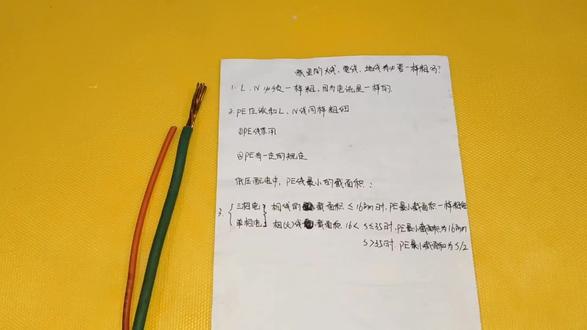 家里的火线、零线、地线有必要一样粗吗?
1. L、N必须一样粗,因为电流是一样的
2. PE应该和L、N线同样粗细
①PE线常闭
②PE有一定的规定
低压配电中,PE线最小的截面积:
3. {三相电 相线的截面积 ≤16mm时,PE最小截面积一样粗细
单相电} 相(火)线截面积 16< S≤35时,PE最小截面积为16mm
S>35时,PE最小截面积为S/2